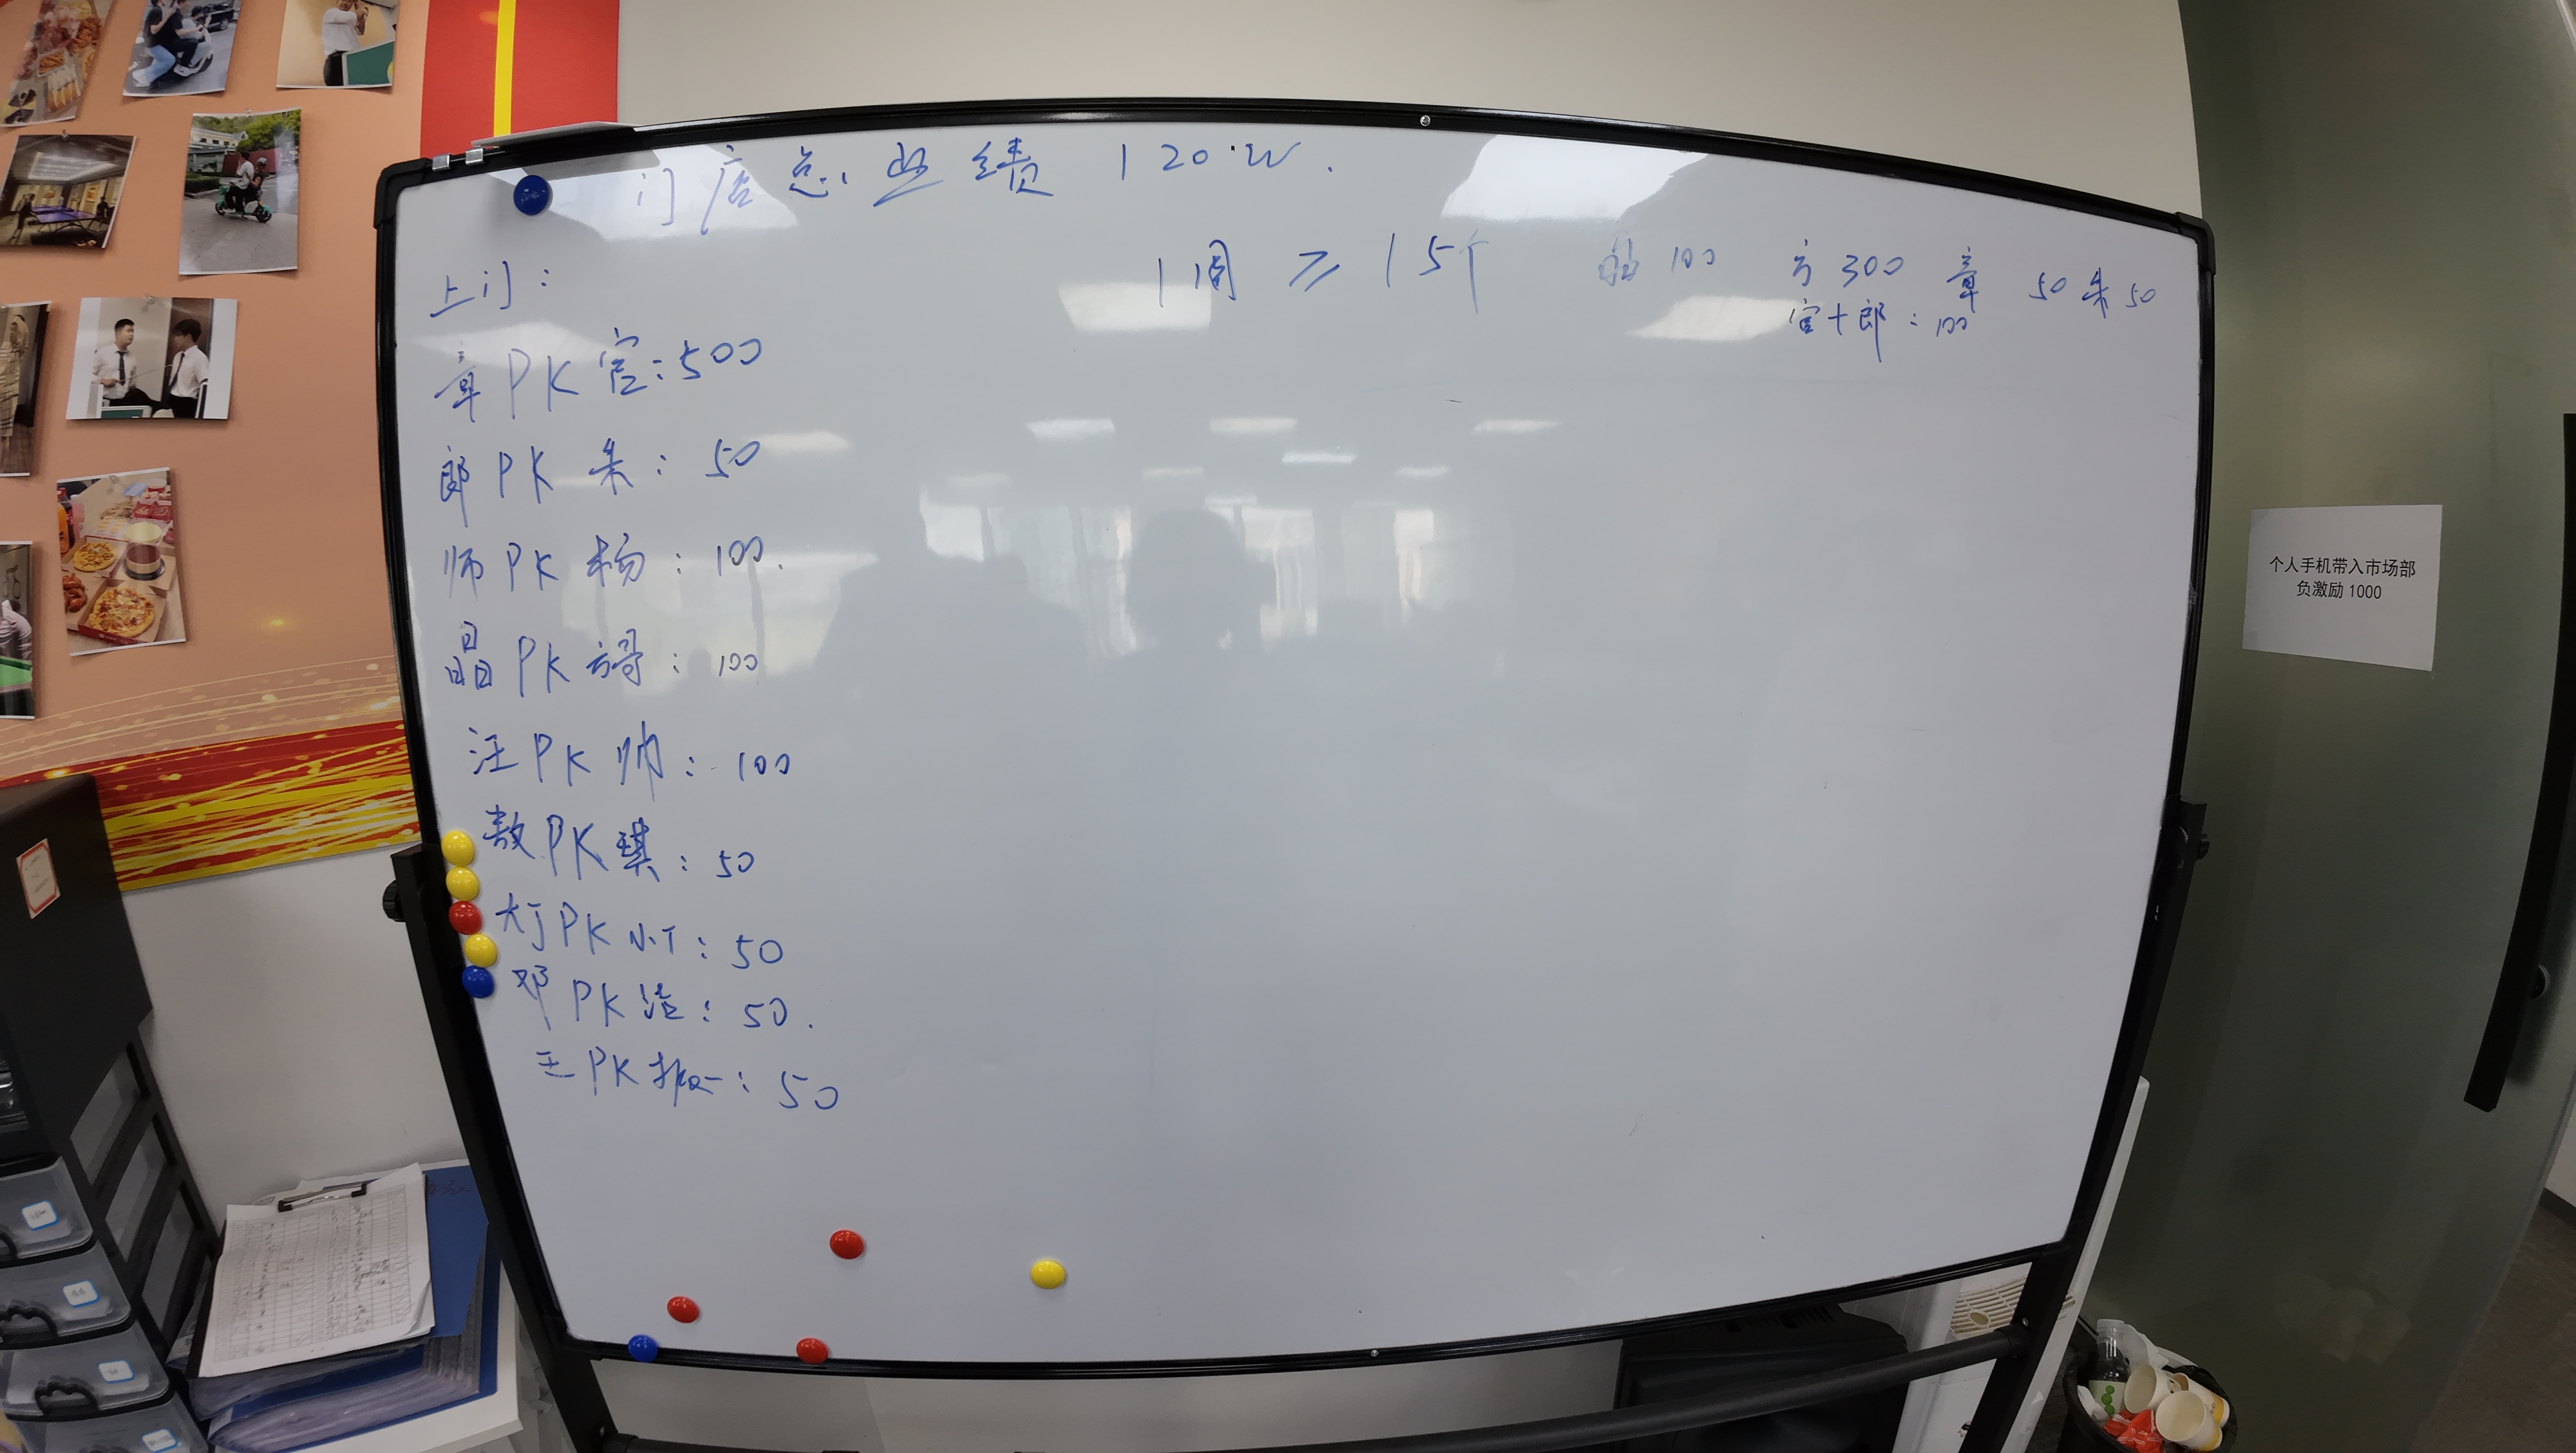 门店总业绩 120·W.
上门:
1周 ≥ 15个 100 方300 章 50 朱50
官+郎:100
章PK官:500
郎PK朱:50
师PK杨:100.
晶PK谔:100
汪PK帅:100
敖PK琪:50
大丁PK小丁:50
邓PK洁:50.
王PK:50
个人手机带入市场部
负激励 1000